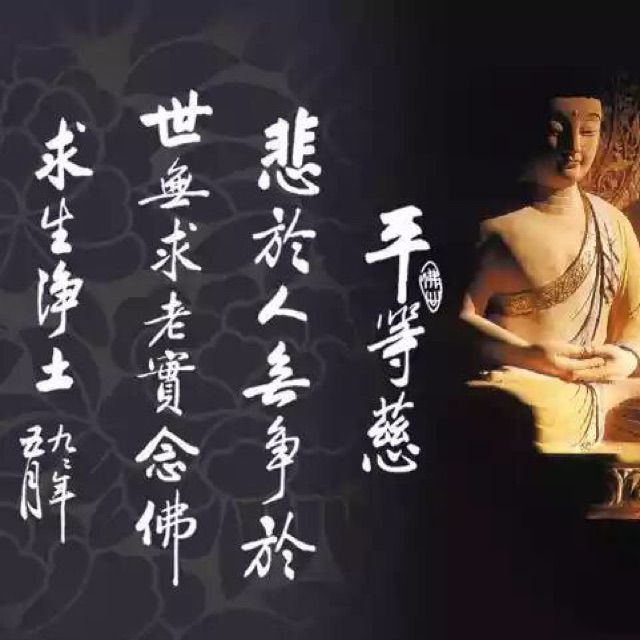 平等慈
悲於人無争於
世無求老實念佛
求生净土
九三年
五月